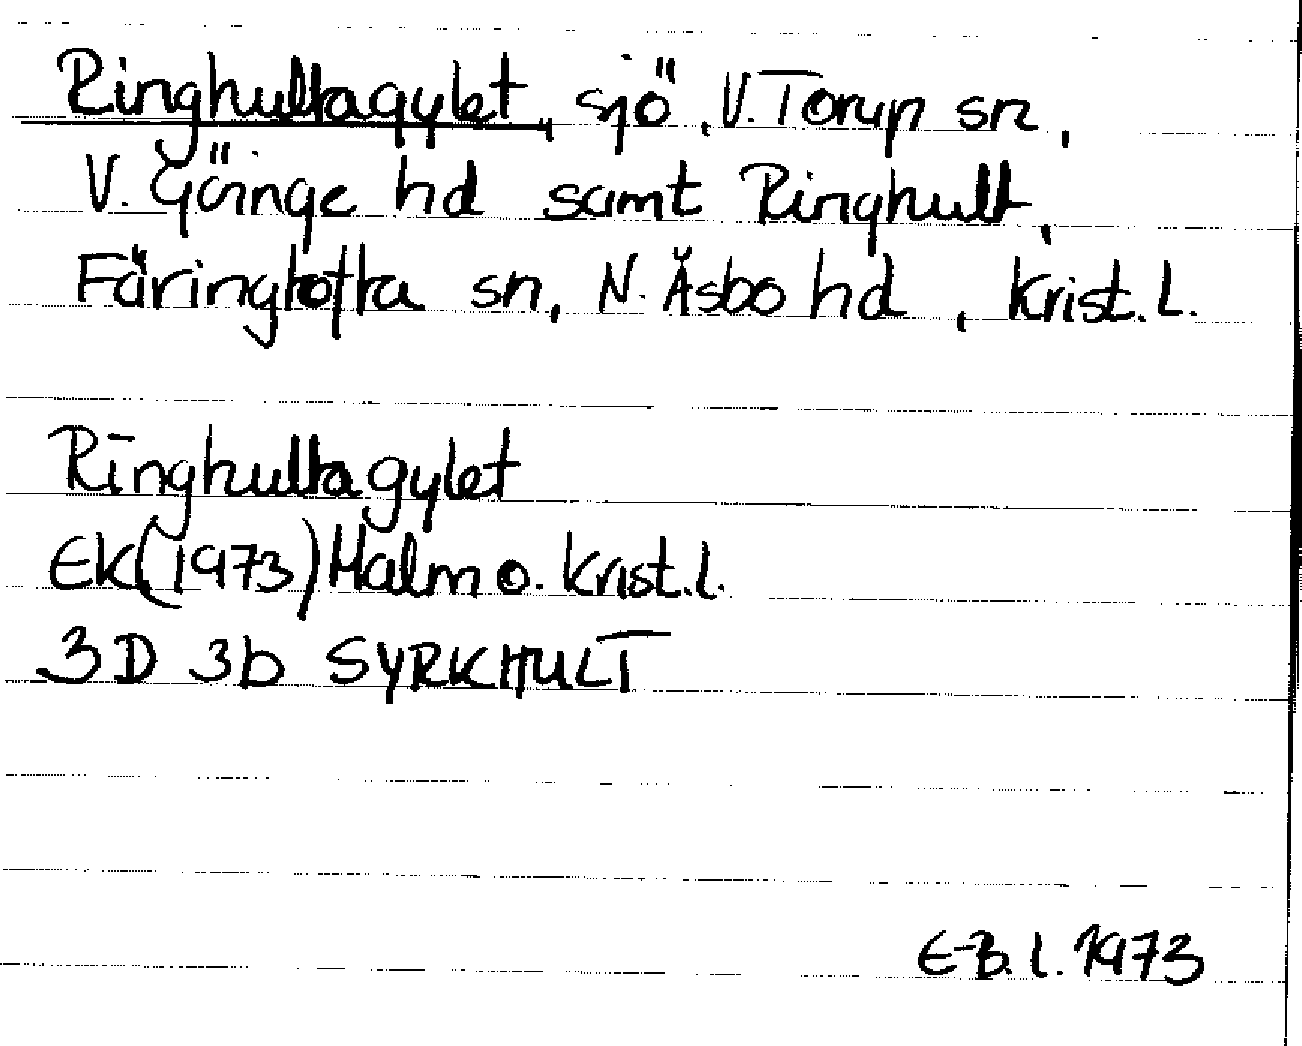 Ringhultagylet, sjö, V. Torup sn,
V. Göinge hd samt Ringhult,
Färingtofta sn, N. Åsbo hd, Krist. L.
Ringhultagylet
EK(1973) Malm o. Krist. l.
3D 3b SYRKHULT
E-B. L. 1973